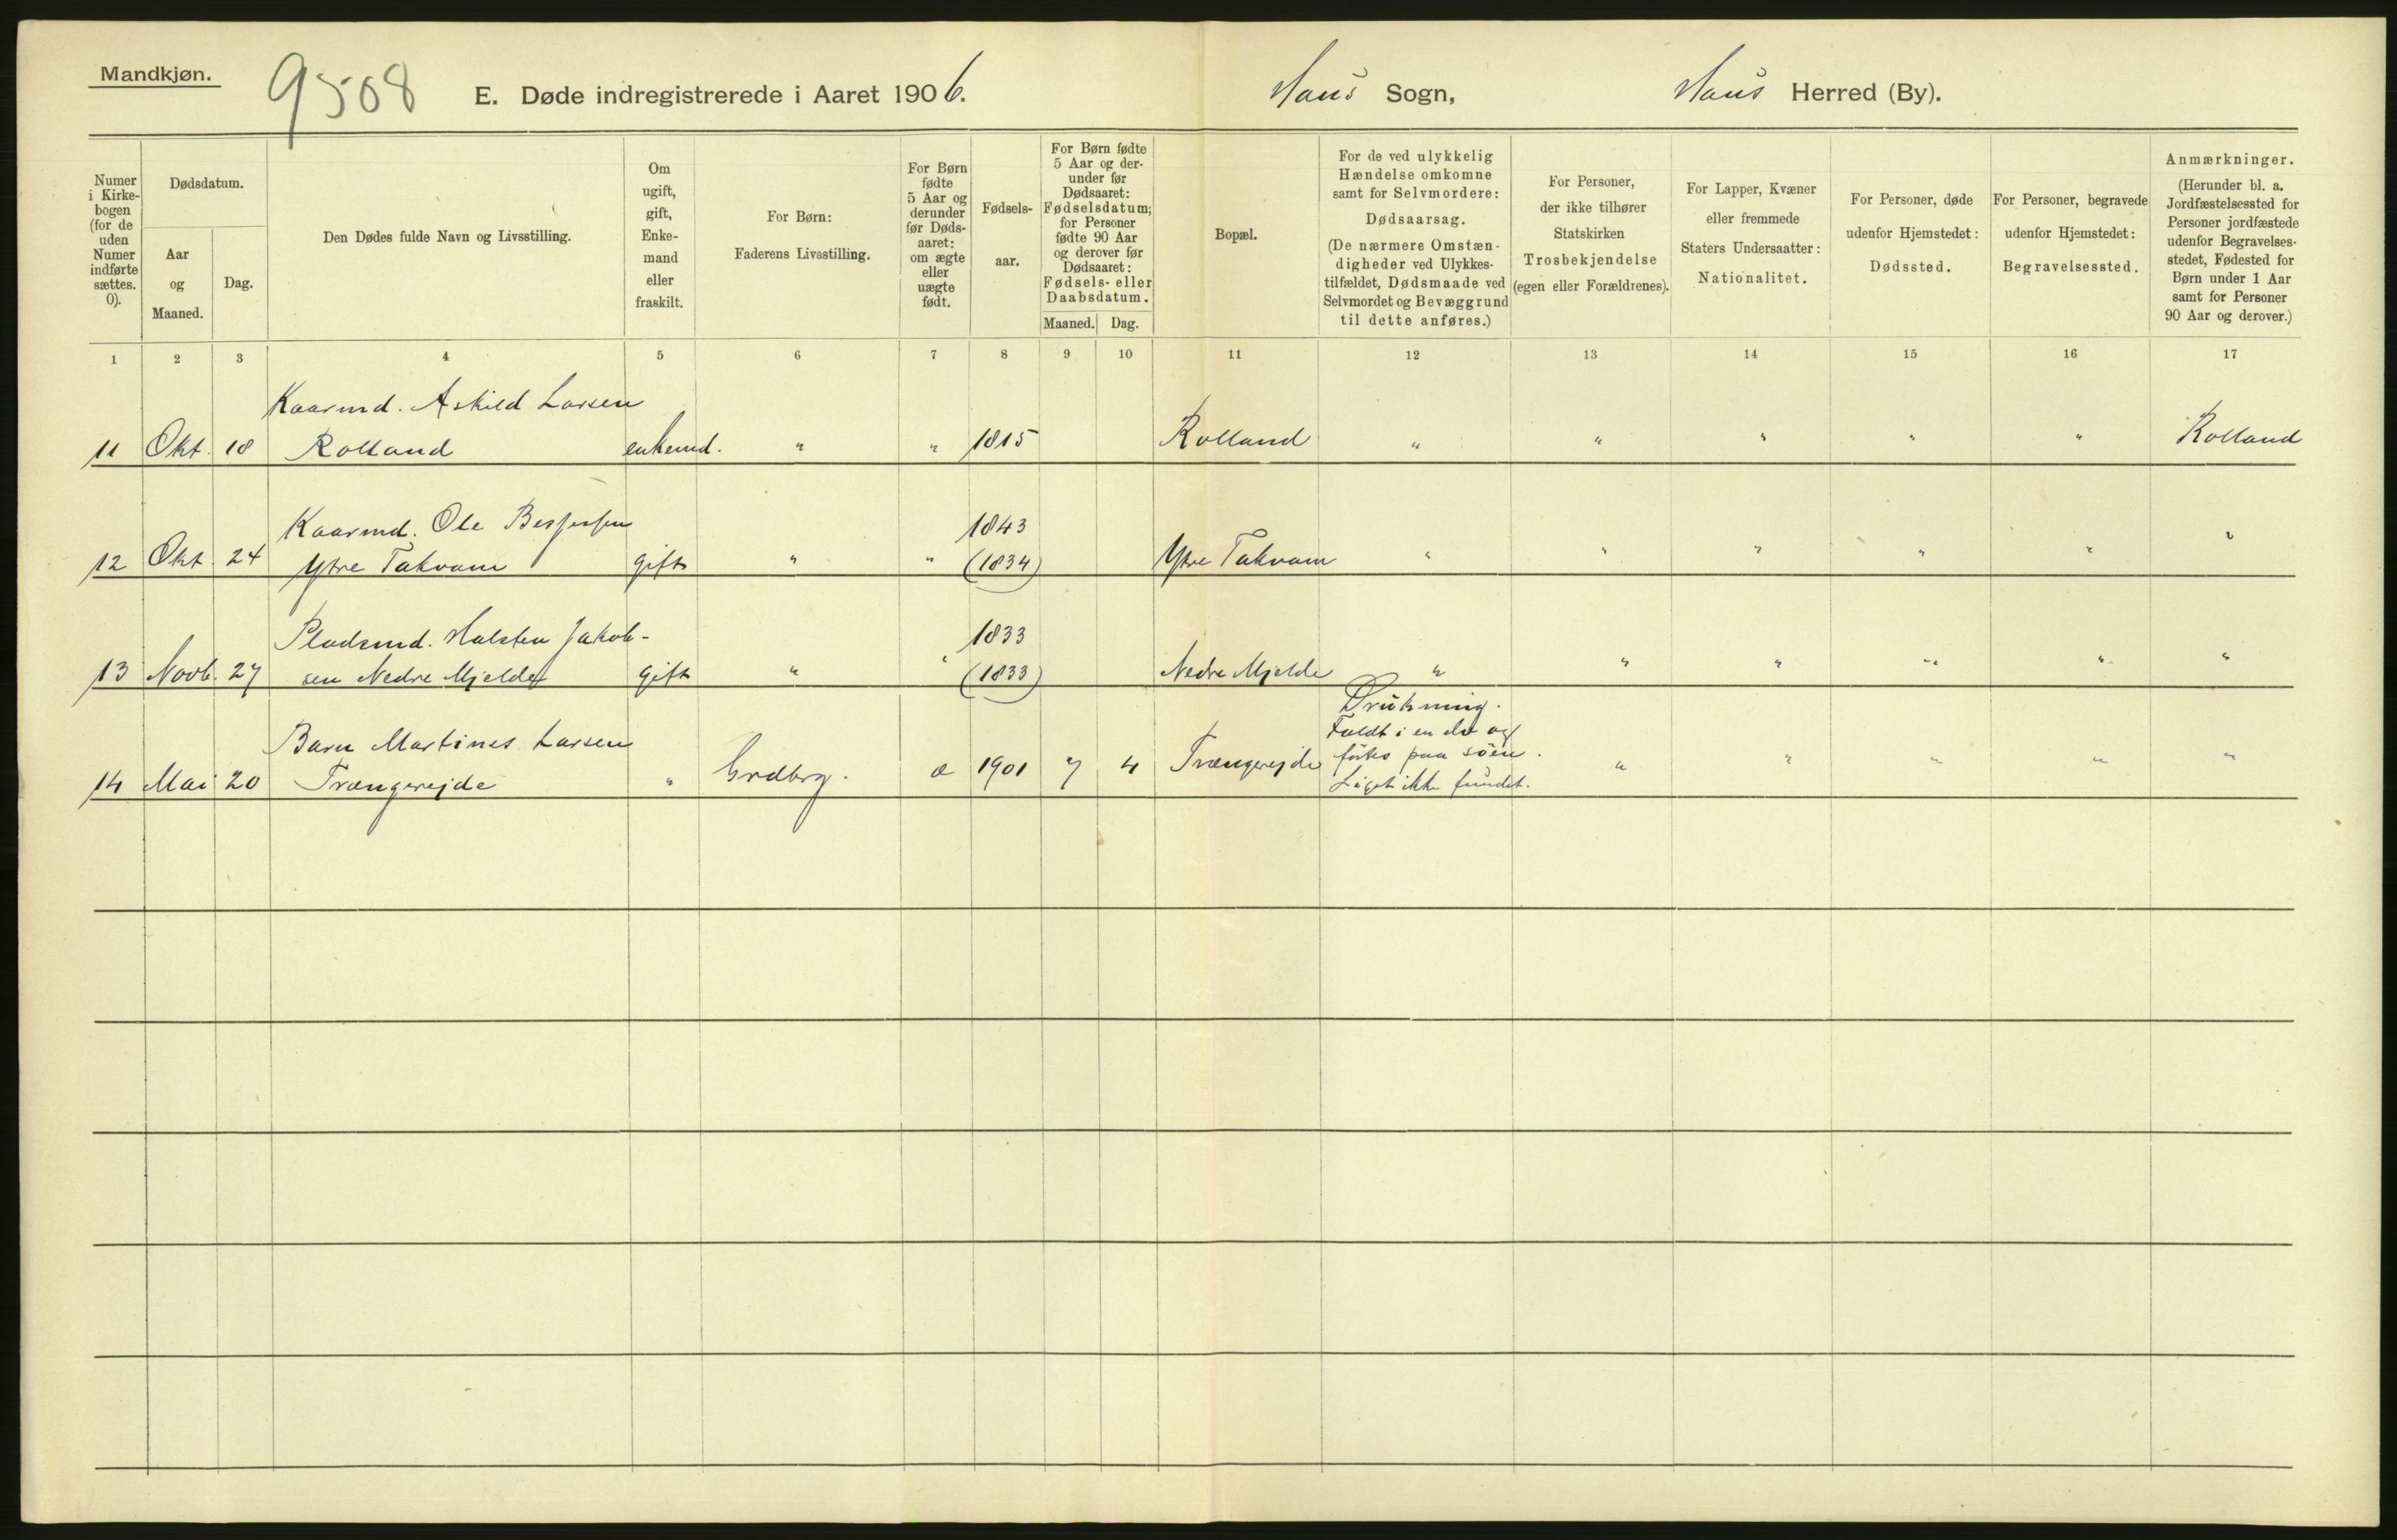 Mandkjøn.
9508
E. Døde indregistrerede i Aaret 1906.
Haus Sogn,
Haus Herred (By).
Numer
i Kirke-
bogen
(for de
uden
Numer
indførte
sættes.
0).
Dødsdatum.
Aar
og
Maaned.
Dag.
Den Dødes fulde Navn og Livsstilling.
Om
ugift,
gift,
Enke-
mand
eller
fraskilt.
For Børn:
Faderens Livsstilling.
For Børn
fødte
5 Aar og
derunder
før Døds-
aaret:
om ægte
eller
uægte
født.
Fødsels-
aar.
For Børn fødte
5 Aar og der-
under før
Dødsaaret:
Fødselsdatum;
for Personer
fødte 90 Aar
og derover før
Dødsaaret:
Fødsels- eller
Daabsdatum.
Maaned. Dag.
Bopæl.
For de ved ulykkelig
Hændelse omkomne
samt for Selvmordere:
Dødsaarsag.
(De nærmere Omstæn-
digheder ved Ulykkes-
tilfældet, Dødsmaade ved
Selvmordet og Bevæggrund
til dette anføres.)
For Personer,
der ikke tilhører
Statskirken
Trosbekjendelse
(egen eller Forældrenes).
For Lapper, Kvæner
eller fremmede
Staters Undersaatter:
Nationalitet.
For Personer, døde
udenfor Hjemstedet:
Dødssted.
For Personer, begravede
udenfor Hjemstedet:
Begravelsessted.
Anmærkninger.
(Herunder bl. a.
Jordfæstelsessted for
Personer jordfæstede
udenfor Begravelses-
stedet, Fødested for
Børn under 1 Aar
samt for Personer
90 Aar og derover.)
1 2 3 4 5 6 7 8 9 10 11 12 13 14 15 16 17
Kaarmd. Askild Larsen
11 Okt. 18 Rolland enkemd. " " 1815 Rolland " " " " " Rolland
Kaarmd. Ole 1843
12 Okt. 24 Ytre Takvam gift " " (1834) Ytre Takvam " " " " " "
Pladsmd. Halsten Jakob- 1833
13 Novb. 27 sen Nedre Mjelde gift " " (1833) Nedre Mjelde " " " " " "
Drukning.
Faldt i en elv og
Barn Martines Larsen
førtes paa søen.
14 Mai 20 Trængereide " Grdbrg. æ 1901 7 4 Trængereide " " " " "
Liget ikke fundet.